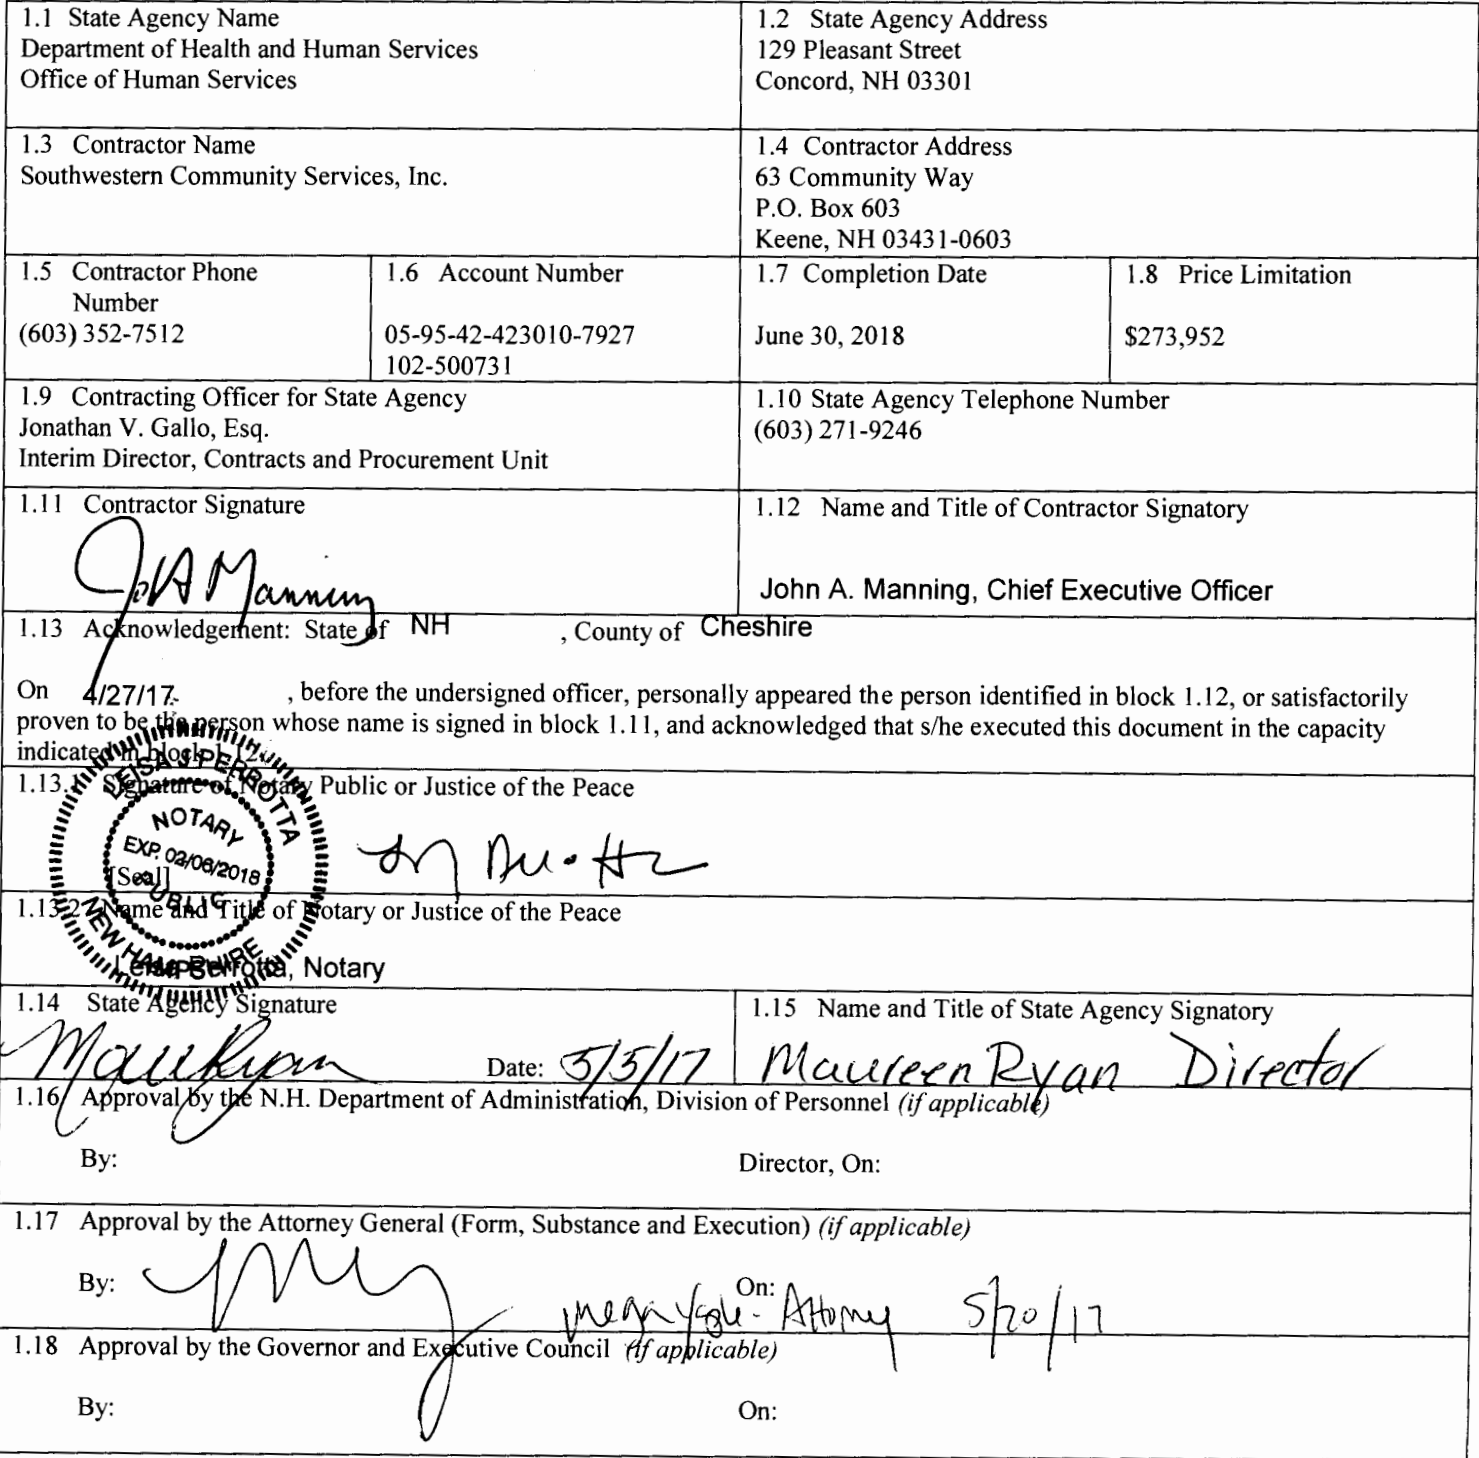 1.1 State Agency Name
Department of Health and Human Services
Office of Human Services
1.2 State Agency Address
129 Pleasant Street
Concord, NH 03301
1.3 Contractor Name
Southwestern Community Services, Inc.
1.4 Contractor Address
63 Community Way
P.O. Box 603
Keene, NH 03431-0603
1.5 Contractor Phone
Number
(603) 352-7512
1.6 Account Number
05-95-42-423010-7927
102-500731
1.7 Completion Date
June 30, 2018
1.8 Price Limitation
$273,952
1.9 Contracting Officer for State Agency
Jonathan V. Gallo, Esq.
Interim Director, Contracts and Procurement Unit
1.10 State Agency Telephone Number
(603) 271-9246
1.11 Contractor Signature
Manning
1.12 Name and Title of Contractor Signatory
John A. Manning, Chief Executive Officer
1.13 Acknowledgement: State of NH , County of Cheshire
On 4/27/17 , before the undersigned officer, personally appeared the person identified in block 1.12, or satisfactorily
proven to be the person whose name is signed in block 1.11, and acknowledged that s/he executed this document in the capacity
indicated in block 1.12.
1.13.1 Signature of Notary Public or Justice of the Peace
LEISA J PERROTTA
NOTARY
EXP. 02/06/2018
[Seal]
PUBLIC
NEW HAMPSHIRE
1.13.2 Name and Title of Notary or Justice of the Peace
Leisa Perrotta, Notary
1.14 State Agency Signature
Date: 5/5/17
1.15 Name and Title of State Agency Signatory
Maureen Ryan Director
1.16 Approval by the N.H. Department of Administration, Division of Personnel (if applicable)
By:
Director, On:
1.17 Approval by the Attorney General (Form, Substance and Execution) (if applicable)
By:
On:
Attorney 5/20/17
1.18 Approval by the Governor and Executive Council (if applicable)
By:
On: